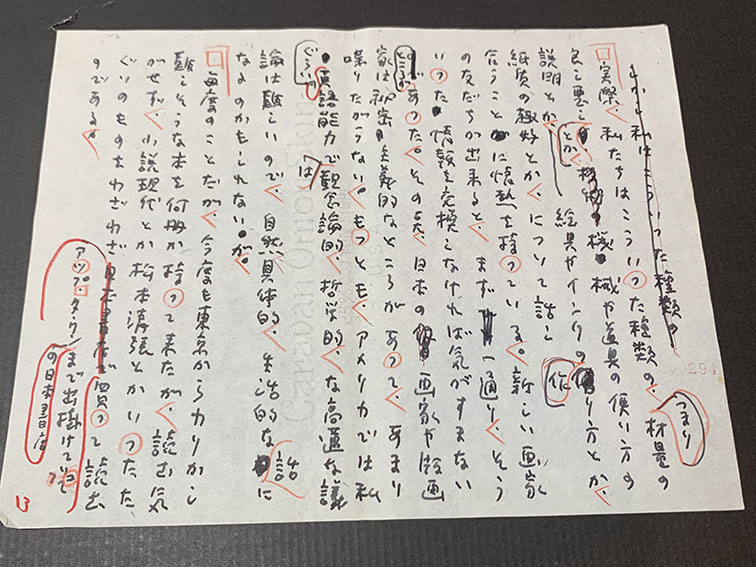 しかも私はこういった種類の
実際、私たちはこういった種類の、つまり材量の
良し悪しとか、機械や道具の使い方の
説明とか、絵具やインクの作り方とか、
紙質の趣好とか、について話し
合うことに情熱を持っている。新しい画家
の友だちが出来ると、まず一通り、そう
いった情報を交換しなければ気がすまない
ところがあった。その点、日本の画家や版画
家は秘密主義的なところがあって、あまり
喋りたがらない。もっとも、アメリカでは私
ぐらいの英語能力では観念論的、哲学的、な高遠な議
論は難しいので、自然具体的、生活的な話に
なるのかもしれない。が、
毎度のことだが、今度も東京からカりかし
難しそうな本を何冊か持って来たが、読む気
がせず、小説現代とか松本清張とかいった
ぐいのものをわざわざアップ・タウンの日本書店まで出掛けて行って買って読む
のである。
294
13